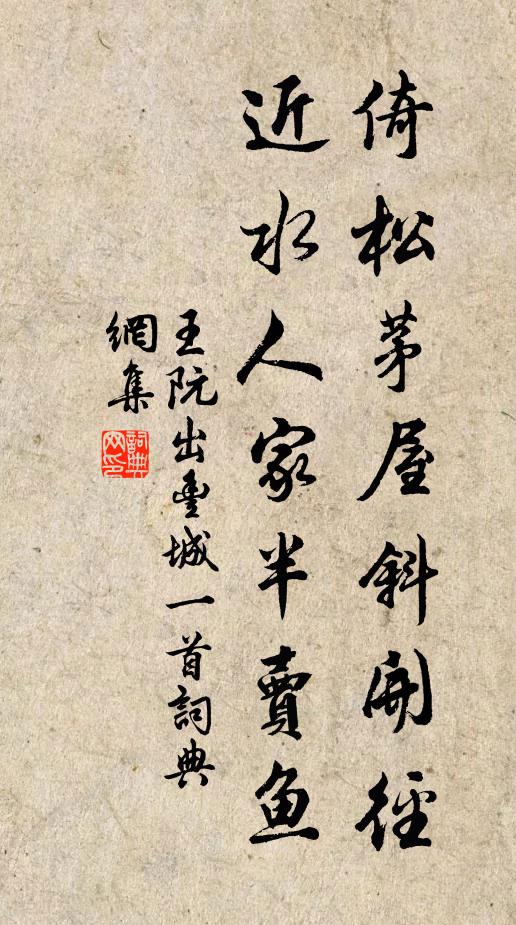 倚松茅屋斜開徑
近水人家半賣魚
王阮出豐城一首詞典
網集
詞典网印